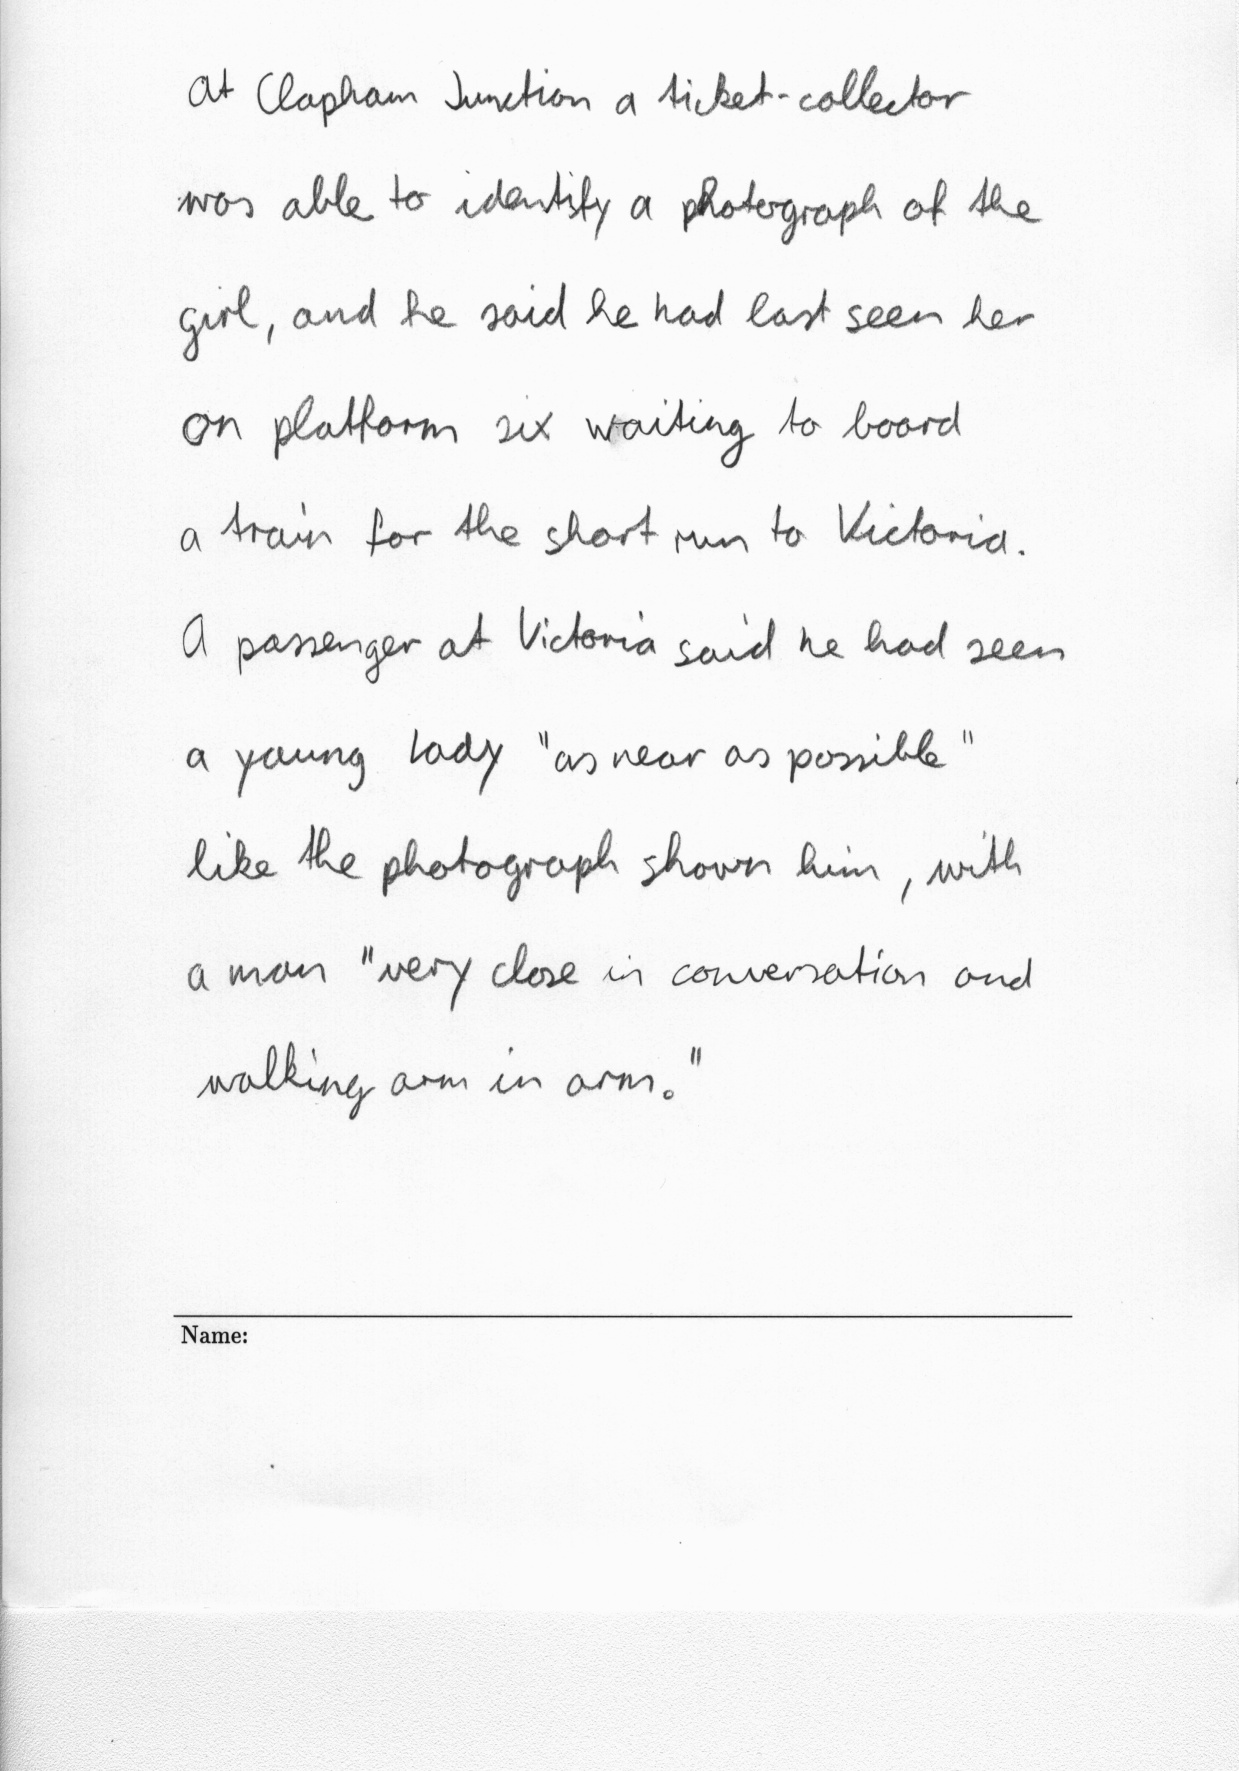 At Clapham Junction a ticket-collector
was able to identify a photograph of the
girl, and he said he had last seen her
on platform six waiting to board
a train for the short run to Victoria.
A passenger at Victoria said he had seen
a young lady "as near as possible"
like the photograph shown him, with
a man "very close in conversation and
walking arm in arm."
Name: